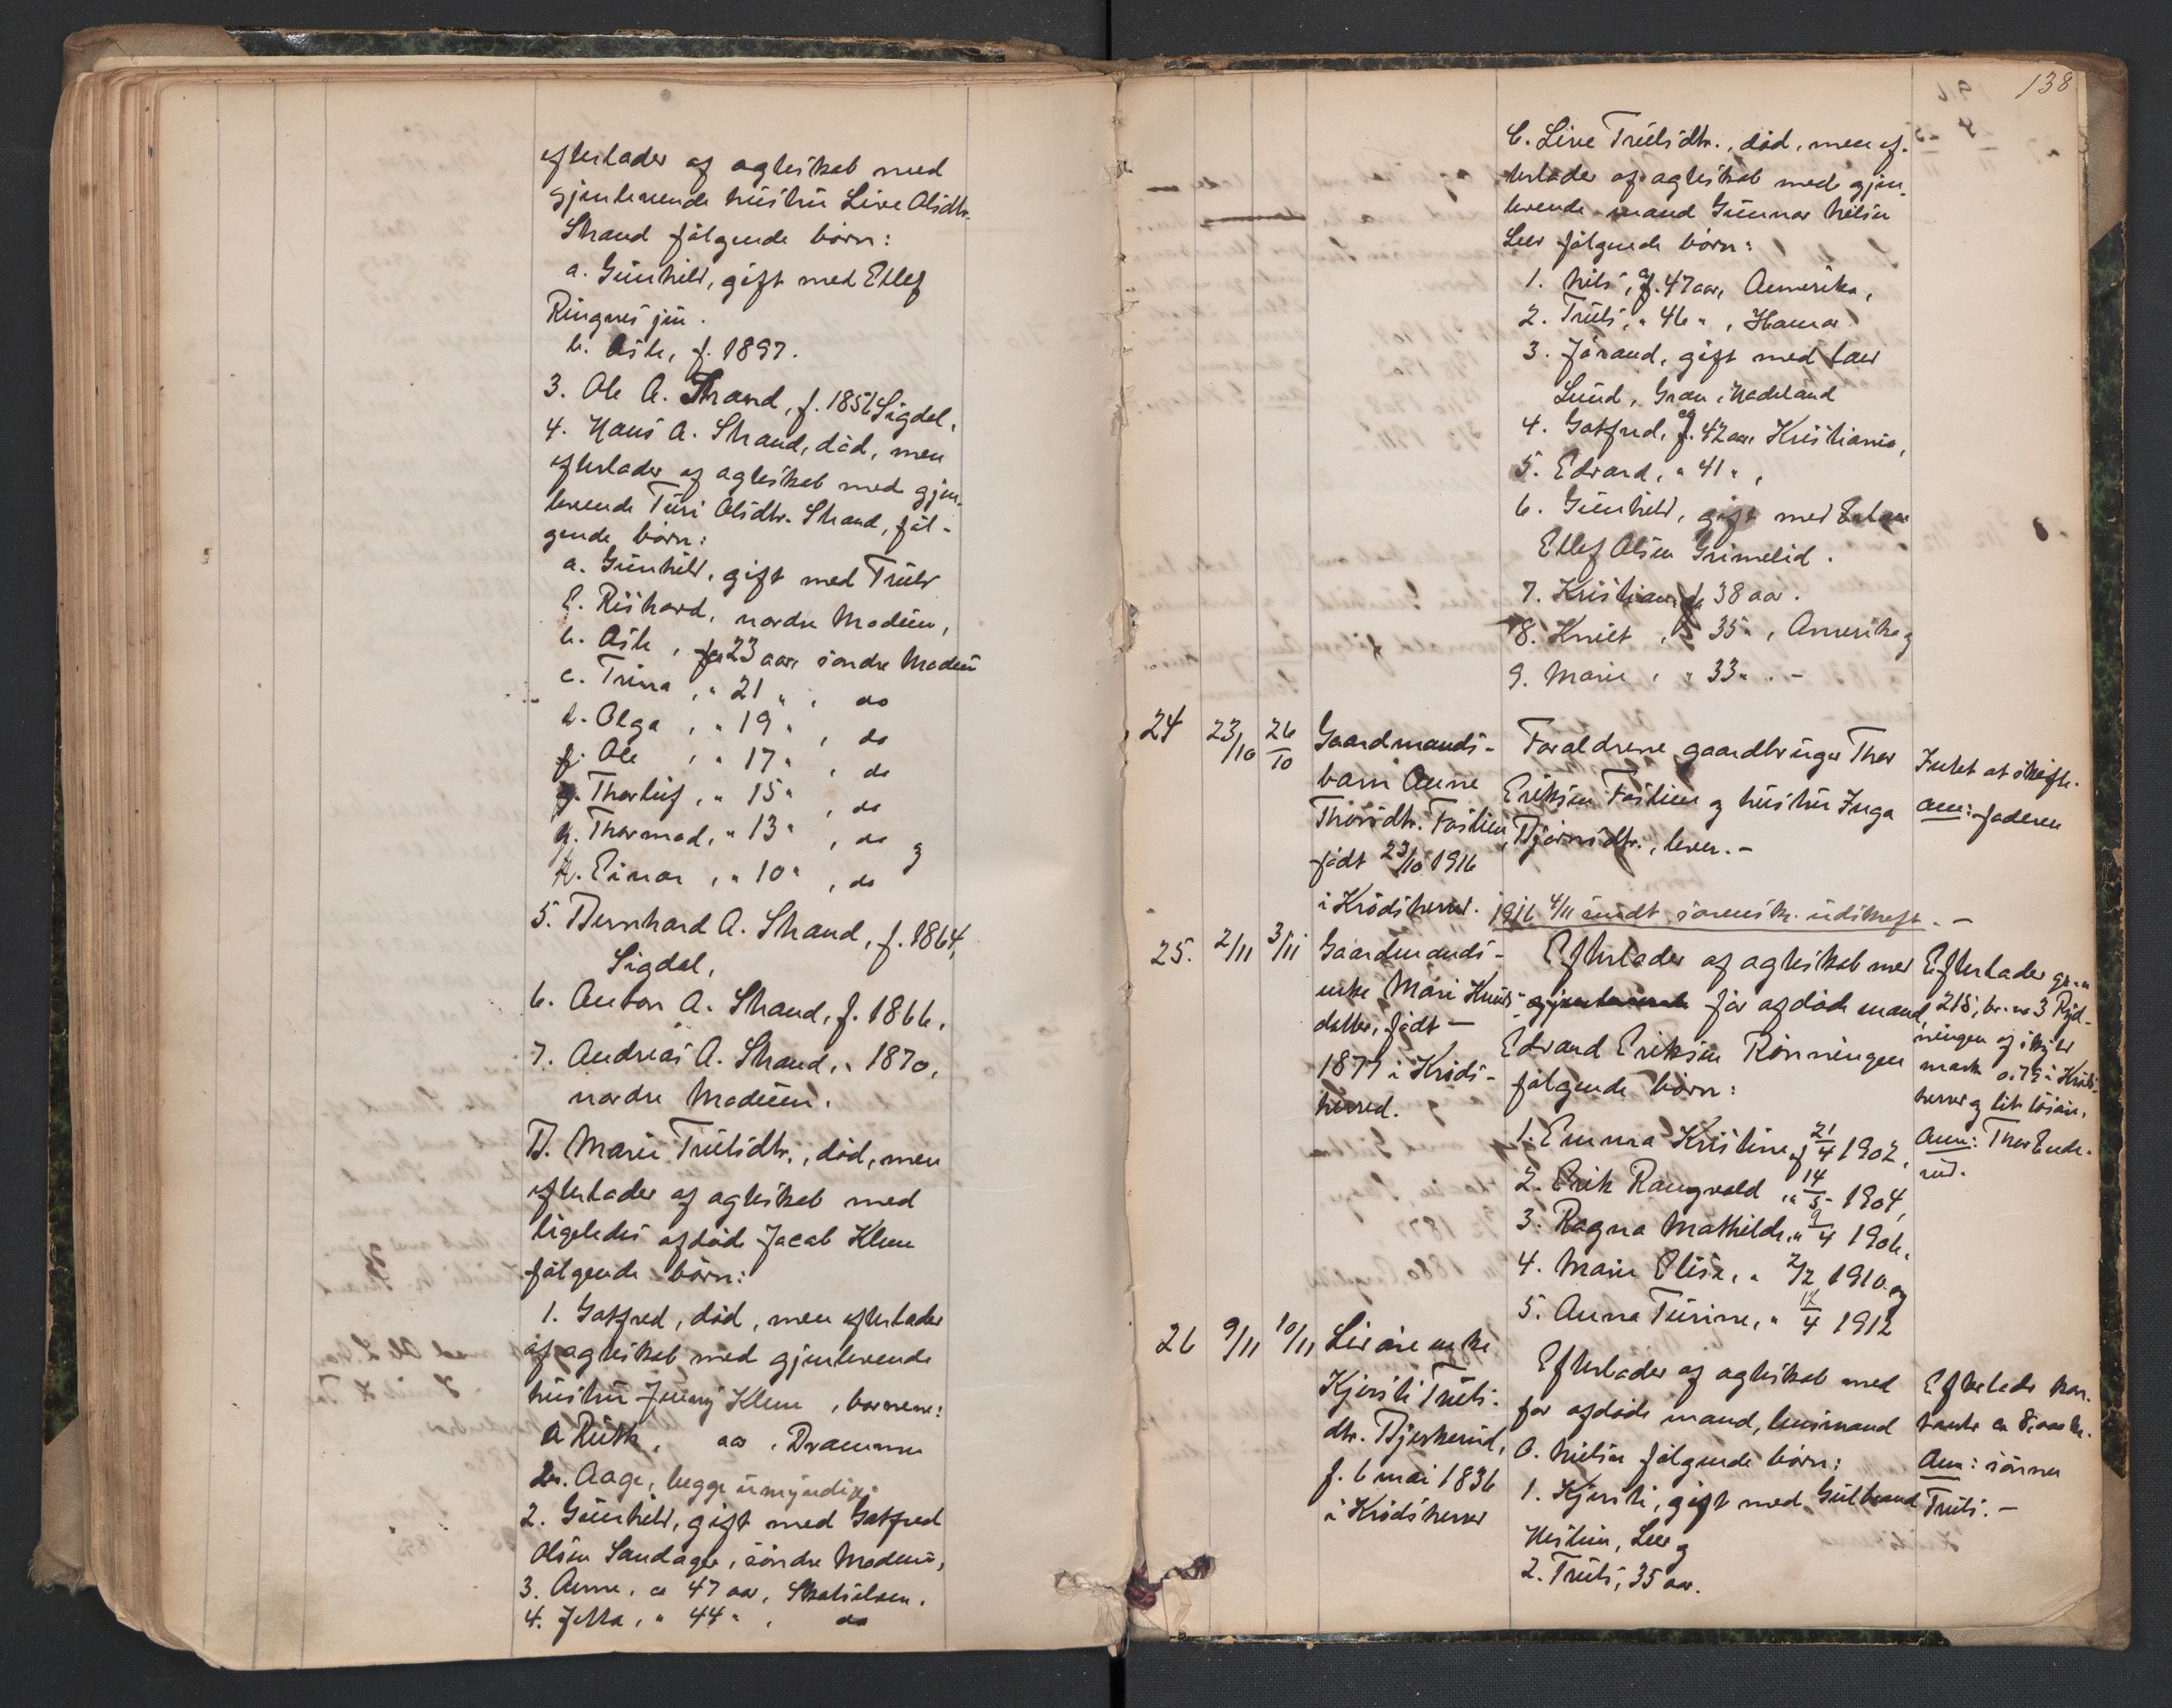 efterlader af ægteskab med
gjenlevende hustru Live Olsdtr.
Strand følgende børn:
a. Gunhild, gift med Ellef
Ringnes jun.
b. Aste, f. 1897.
3. Ole A. Strand, f. 1856 Sigdal,
4. Hans A. Strand, død, men
efterlader af ægteskab med gjen-
levende Turi Olsdtr. Strand, føl-
gende børn:
a. Gunhild, gift med Truls
E. Rishovd, nordre Modum,
b. Aste, 23 aar, søndre Modum
c. Trina, " 21 " , do
d. Olga, " 19 " , do
f. Ole, " 17 " , do
g. Thorleif, " 15 " , do
h. Thormod, " 13 " , do og
k. Einar, " 10 " , do
5. Bernhard A. Strand, f. 1864,
Sigdal,
6. Anton A. Strand, f. 1866,
7. Andreas A. Strand, " 1870,
nordre Modum.
B. Marie Trulsdtr., død, men
efterlader af ægteskab med
ligeledes afdøde Jacob Klem
følgende børn:
1. Gotfred, død, men efterlader
af ægteskab med gjenlevende
hustru Jenny Klem, børnene:
a Ruth, aar, Drammen
b. Aage, begge umyndige.
2. Gunhild, gift med Gotfred
Olsen Sandager, søndre Modum,
3. Anne, ca 47 aar, Skotselven,
4. Jetta, " 44 " , do
138
C. Live Trulsdtr., død, men ef-
terlader af ægteskab med gjen-
levende mand Gunnar Nilsen
Leer følgende børn:
1. Nils, 47 aar, Amerika,
2. Truls, " 46 " , Hamar
3. Jørand, gift med Lars
Lund, Gran, Hadeland
4. Gotfred, 42 aar, Kristiania,
5. Edvard, " 41 " ,
6. Gunhild, gift med
Ellef Olsen Grimelid.
7. Kristian, 38 aar.
8. Knut, " 35 " , Amerika og
9. Marie, " 33 " . -
24 23/10 26/10 Gaardmands-
barn Anne
Thorsdtr. Foslien,
født 23/10 1916
i Krødsherred.
Forældrene gaardbruger Thor
Eriksen Foslien og hustru Inga
Bjørnsdtr., lever. -
Intet at skifte.
Anm: faderen
1916 4/11 sendt sorenskr. udskrift. -
25. 2/11 3/11 Gaardmands-
enke Mari Knuds-
datter, født -
1877 i Krøds-
herred.
Efterlader af ægteskab med
før afdøde mand,
Edvard Eriksen Rønningen
følgende børn:
1. Emma Kristine, f 21/4 1902,
2. Erik Rangvald, " 14/5 1904,
3. Ragna Mathilde, " 9/4 1906,
4. Marie Elise, " 2/2 1910 og
5. Anna Turine, " 17/4 1912
Efterlader gr.n
215, br.no 3 Ryd-
ningen af skyld
mark 0.77 i Krøds-
herred og lit løsøre.
Anm: Thor Ende-
rud.
26 9/11 10/11 Livøreenke
Kjersti Truls-
dtr. Bjerkerud,
f. 6 mai 1836
i Krødsherred
Efterlader af ægteskab med
før afdøde mand, lensmand
O. Nielsen følgende børn:
1. Kjersti, gift med Gulbrand
Heslien, Leer og
2. Truls, 35 aar.
Efterlader kon-
tanter ca 8,000 kr.
Anm: sønnen
Truls. -